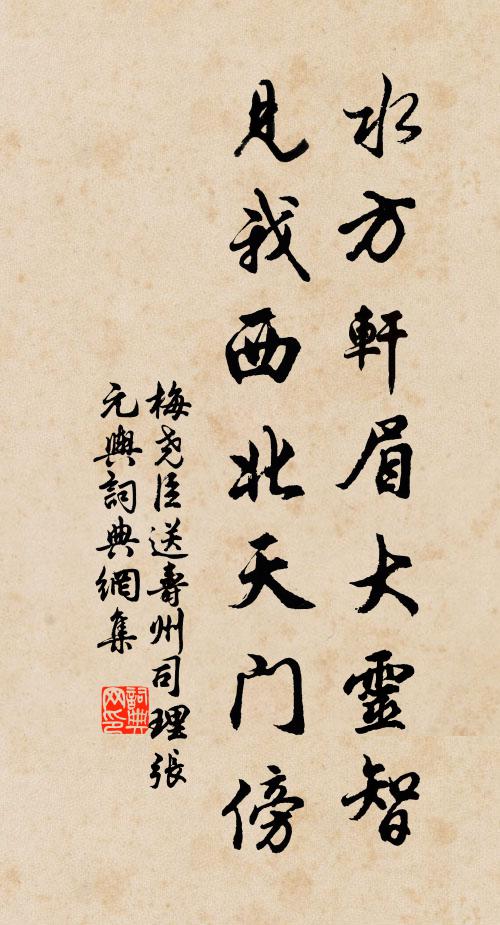 水方軒眉大靈智
見我西北天門傍
梅尧臣送壽州司理張
元輿詞典網集
詞典网印